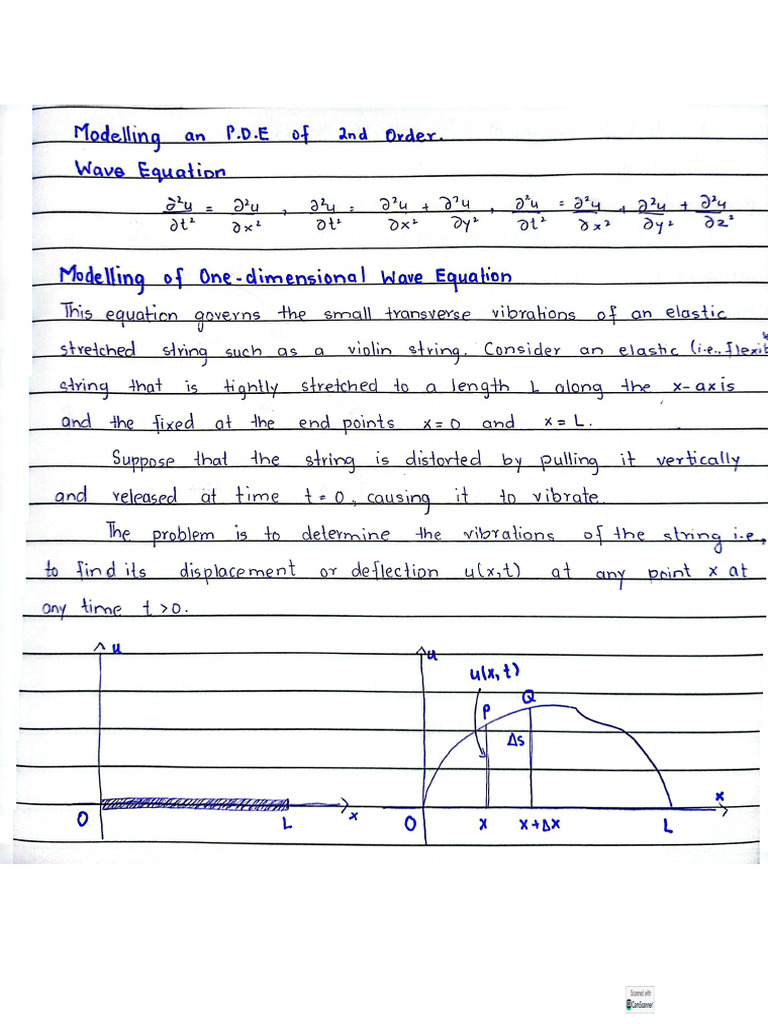 Modelling an P.D.E of 2nd Order.
Wave Equation
∂²u/∂t² = ∂²u/∂x² , ∂²u/∂t² = ∂²u/∂x² + ∂²u/∂y² , ∂²u/∂t² = ∂²u/∂x² + ∂²u/∂y² + ∂²u/∂z²
Modelling of One-dimensional Wave Equation
This equation governs the small transverse vibrations of an elastic
stretched string such as a violin string. Consider an elastic (i.e., flexib
string that is tightly stretched to a length L along the x-axis
and the fixed at the end points x=0 and x=L.
Suppose that the string is distorted by pulling it vertically
and released at time t=0, causing it to vibrate.
The problem is to determine the vibrations of the string i.e.,
to find its displacement or deflection u(x,t) at any point x at
any time t>0.
u
O
L
x
u
u(x,t)
P
Q
Δs
O
x
x+Δx
L
x
Scanned with
CamScanner